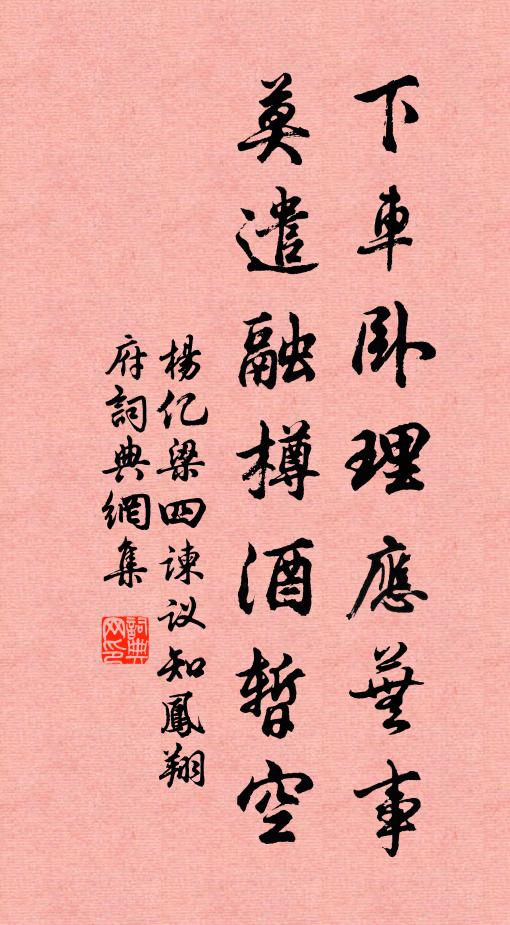 下車卧理應無事
莫遣融樽酒暫空
楊亿梁四諫议知鳳翔
府詞典網集
詞典网印